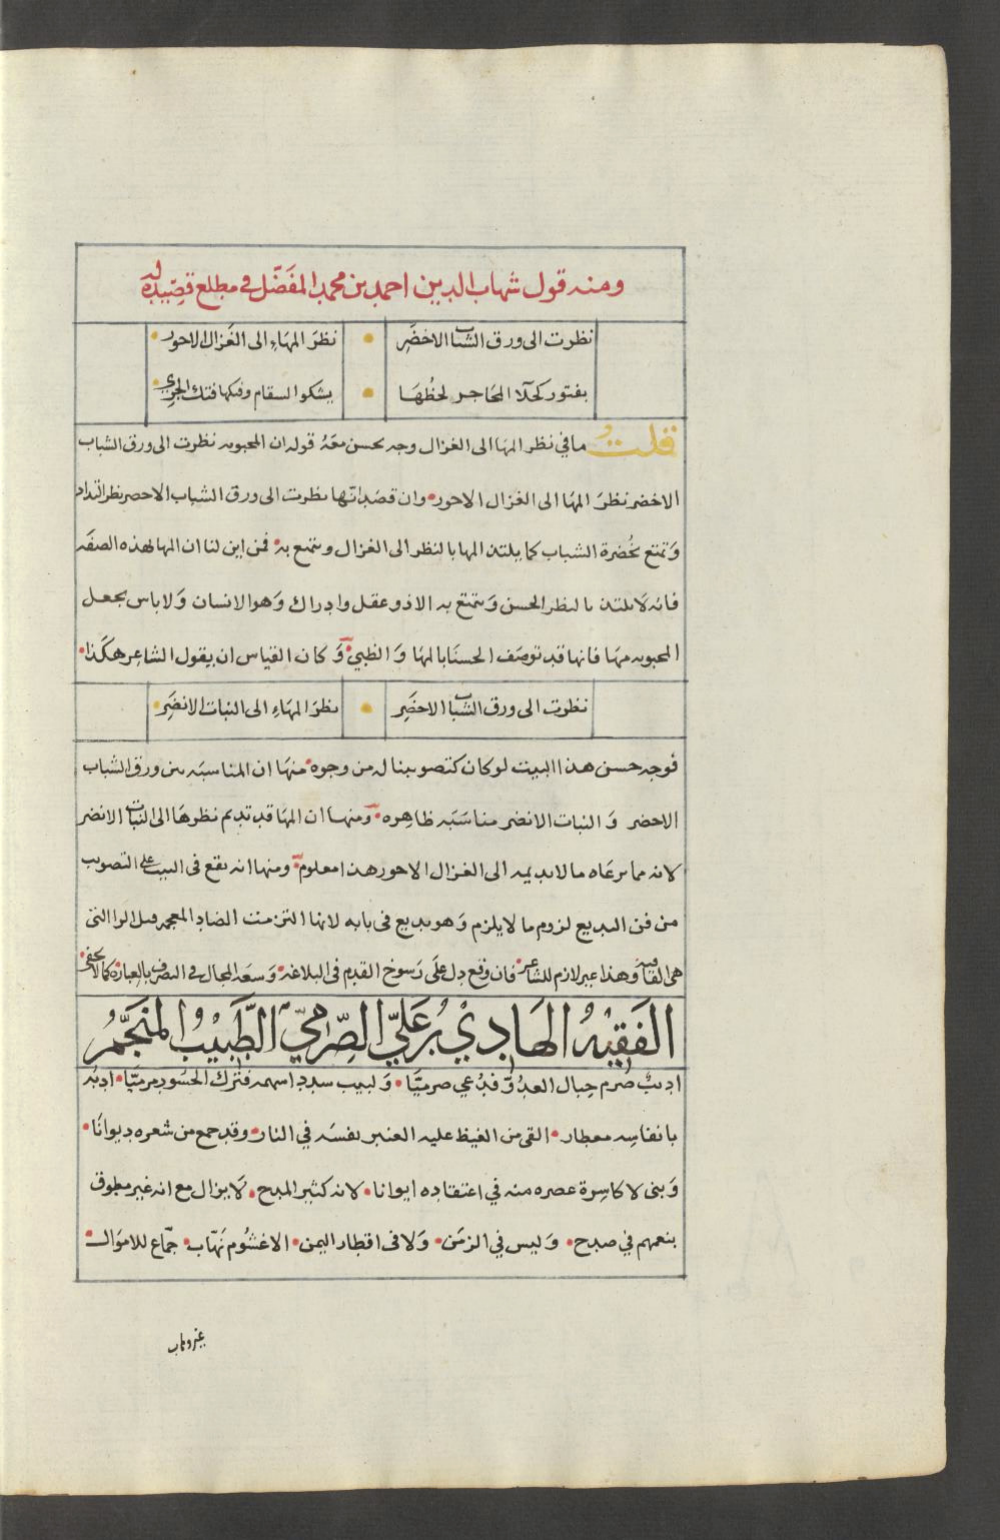 ومنه قول شهاب الدين احمد بن محمد المفَضَّل في مطلع قصِيّده له
نظرت الى ورق الشباب الاخضَرِ • نظرَ المهَاءِ الى الغَزال الاحور •
بفتور كحلا المحَاجر لحظُهَا • يشكوا السقام وفتكها فتك الجرى •
قلتُ ما في نظر المها الى الغزال وجه يحسن معَهُ قوله ان المحبوبه نظرت الى ورق الشباب
الاخضر نظرَ المهَا الى الغزال الاحور • وان قصَد انّها نظرت الى ورق الشباب الاحصر نظر التداد
وَتمتع بخُضرة الشباب كما يلتذ المها بالنظر الى الغزال ويتمتع به • فمن اين لنا ان المها لهذه الصفَه
فانه لَا يلتذ بالنظر الحسن وَيتمتع به الا ذو عقل وادراك وَهو الانسان وَلا باس بجعل
المحبوبه مهَا فانها قد توصَف الحسنَا بالمهَا وَ الظبي • وَ كان القياس ان يقول الشاعر هكَذا •
نظرت الى ورق الشباب الاحضَرِ • نظرَ المهَاءِ الى النبات الانضَرِ •
فوجه حسن هذا البيت لو كان كتصويبنا له من وجوه • منهَا ان المناسبَه بين ورق الشباب
الاحضر وَ النبات الانضر مناسَبَه ظاهره • ومنها ان المهَا قد تديم نظرهَا الى النبات الانضر
لانه مما ترعَاه ما لا تديمه الى الغزال الاحور هذا معلوم • ومنها انه يقع في البيت على التصويب
من فن البديع لزوم ما لا يلزم وَهو بديع في بابه لانها التزمت الضاد المعجمه قبل الرا التى
هي القافيه وهذا غير لازم للشاعر • فان وقع دل علَى رَسوخ القدم في البلاغه • وَسعَه المجال في التصرف بالعبارة كما لا يخفى •
الفَقِيْهُ الهَادِيْ بْنُ عَلِيّ الصِّرَاميّ الطَّبِيْبُ المنَجِّمُ
اديبٌ صَرم حِبال العدُوّ فدُعي صرميًّا • وَلبيب سدد اسهمه فترك الحسُود مرميًّا • اديبُ
بانفاسِه معطار • القى من الغيظ عليه العنبر نفسَه في النار • وقد جمع من شعره ديوانًا •
وَبنى لاكاسِرة عصره منه في اعتقاده ايوانا • لانه كثير المدح • لَا يزال مع انه غير مطوق
بنعمهم في صدح • وَليس في الزمَن • وَلا في اقطار اليمن • الا غشُوم نَهّاب • جمّاع للاموَال •